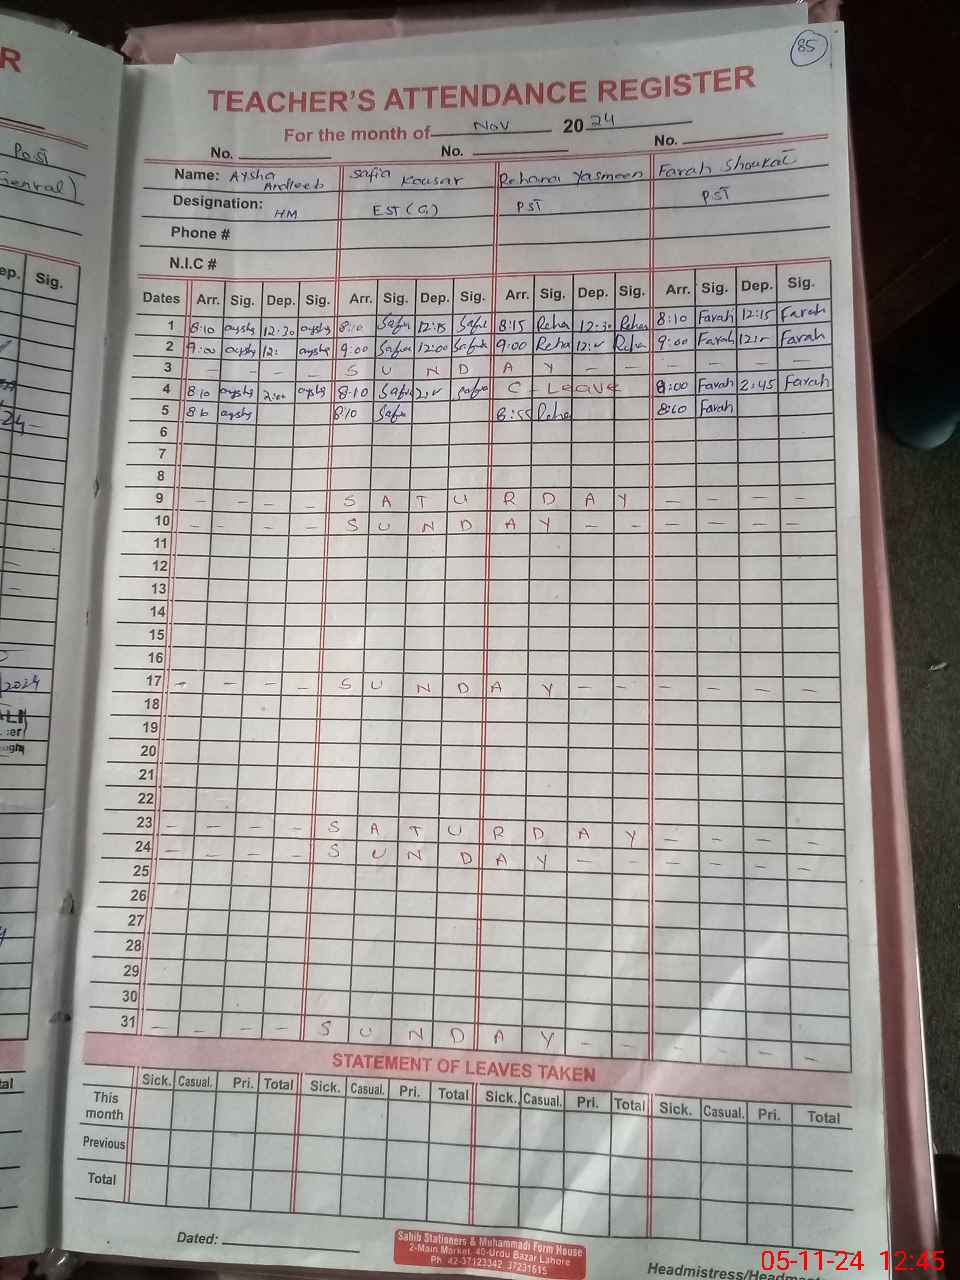 85
TEACHER'S ATTENDANCE REGISTER
For the month of Nov 2024
No. No. No.
Name: Aysha Andleeb Safia Kousar Rehana Yasmeen Farah Shoukat
Designation: HM EST (G) PST PST
Phone #
N.I.C #
Dates Arr. Sig. Dep. Sig. Arr. Sig. Dep. Sig. Arr. Sig. Dep. Sig. Arr. Sig. Dep. Sig.
1 8:10 aysha 12:30 aysha 8:10 Safia 12:15 Safia 8:15 Reha 12:30 Reha 8:10 Farah 12:15 Farah
2 9:00 aysha 12: aysha 9:00 Safia 12:00 Safia 9:00 Reha Reha 9:00 Farah Farah
3 – – – – S U N D A Y – – – – – –
4 8:10 aysha 2:00 aysha 8:10 Safia Safia C - Leave 8:00 Farah 2:45 Farah
5 810 aysha 810 Safia 8:55 Reha 8:10 Farah
6
7
8
9 – – – – S A T U R D A Y – – – –
10 – – – – S U N D A Y – – – – – –
11
12
13
14
15
16
17 – – – – S U N D A Y – – – – – –
18
19
20
21
22
23 – – – – S A T U R D A Y – – – –
24 – – – – S U N D A Y – – – – – –
25
26
27
28
29
30
31 – – – – S U N D A Y – – – – – –
STATEMENT OF LEAVES TAKEN
Sick. Casual. Pri. Total Sick. Casual. Pri. Total Sick. Casual. Pri. Total Sick. Casual. Pri. Total
This month
Previous
Total
Dated:
Sahib Stationers & Muhammadi Form House
2-Main Market, 40-Urdu Bazar Lahore
Ph: 42-37123342 37231615
Headmistress/
05-11-24 12:45
R
Post
Genral)
ep. Sig.
24
2024
ALI
er)
tal